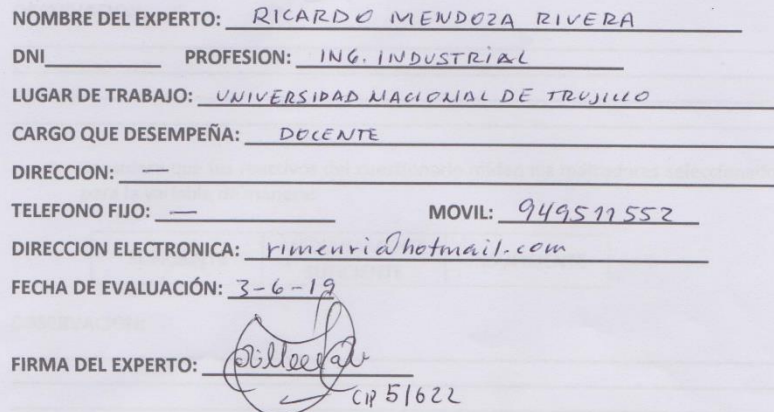 NOMBRE DEL EXPERTO: RICARDO MENDOZA RIVERA
DNI PROFESION: ING. INDUSTRIAL
LUGAR DE TRABAJO: UNIVERSIDAD NACIONAL DE TRUJILLO
CARGO QUE DESEMPEÑA: DOCENTE
DIRECCION: —
TELEFONO FIJO: — MOVIL: 949511552
DIRECCION ELECTRONICA: rimenri@hotmail.com
FECHA DE EVALUACIÓN: 3-6-19
FIRMA DEL EXPERTO:
CIP 51622